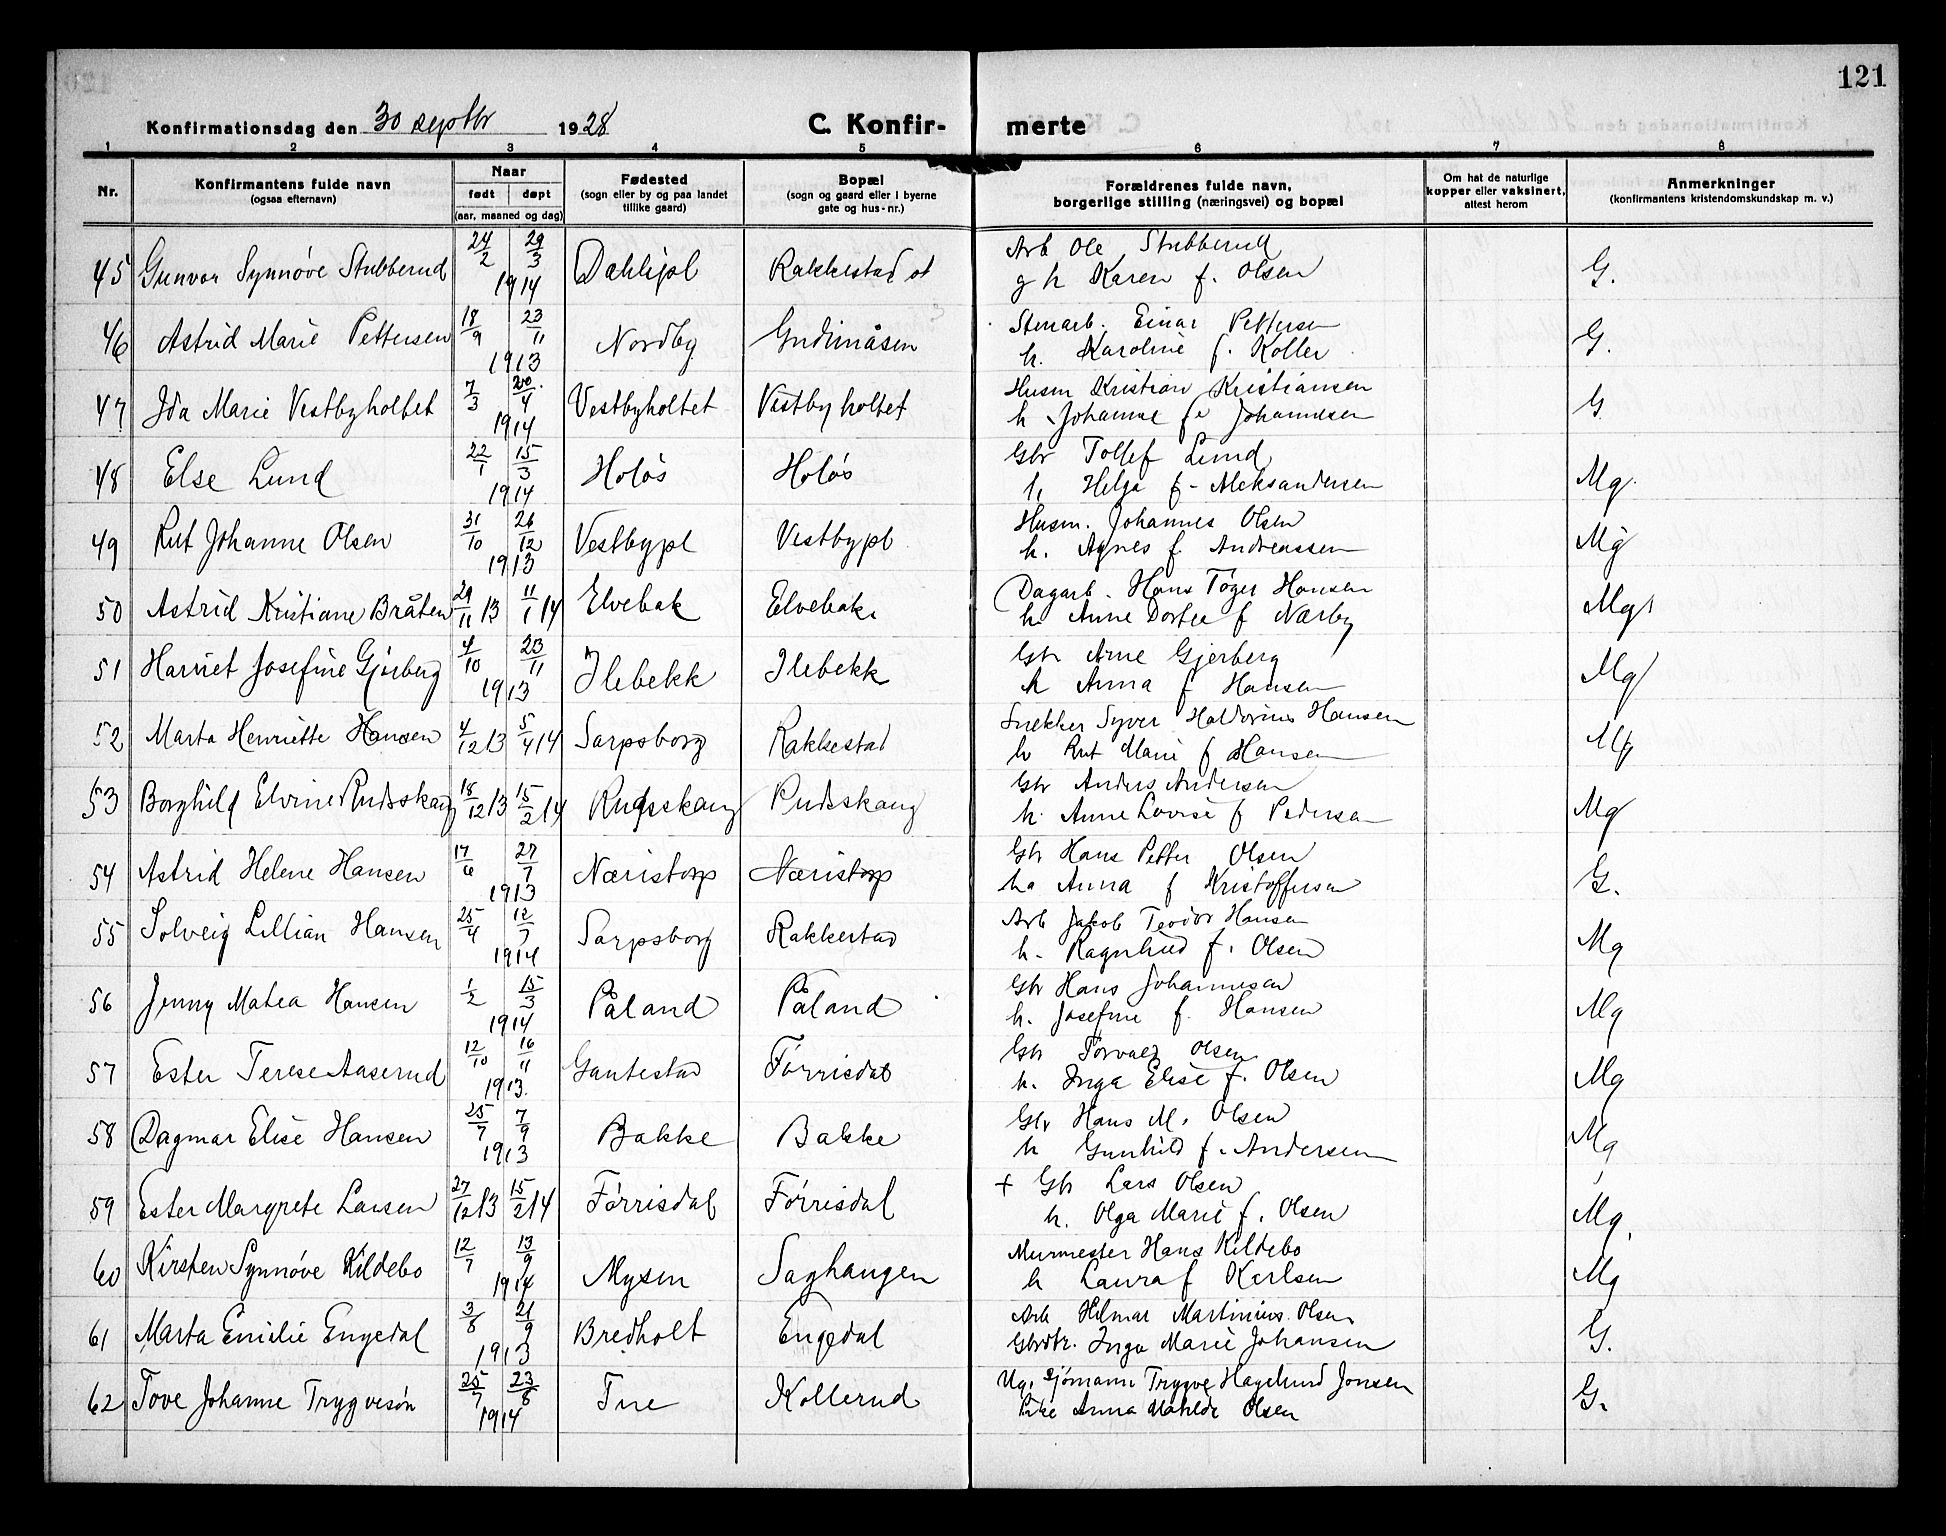 121
Konfirmationsdag den 30 septbr 1928 C. Konfir- merte
1 2 3 4 5 6 7 8
Nr. Konfirmantens fulde navn (ogsaa efternavn) Naar født døpt (aar, maaned og dag) Fødested (sogn eller by og paa landet tillike gaard) Bopæl (sogn og gaard eller i byerne gate og hus-nr.) Forældrenes fulde navn, borgerlige stilling (næringsvei) og bopæl Om hat de naturlige kopper eller vaksinert, attest herom Anmerkninger (konfirmantens kristendomskundskap m. v.)
45 Gunvor Synnøve Stubberud 24/2 29/3 1914 Rakkestad st Arb Ole Stubberud G.
g h Karen f. Olsen
46 Astrid Marie Pettersen 18/9 23/11 1913 Nordby Gudimåsen Stenarb. Einar Pettersen G.
h. Karoline f. Koller
47 Ida Marie Vestbyholtet 7/3 20/4 1914 Vestbyholtet Vestbyholtet Husm Kristian Kristiansen G
h Johanne f. Johannesen
48 Else Lund 22/1 15/3 1914 Holøs Holøs Gbr Tollef Lund Mg.
h Helga f. Aleksandersen
49 Rut Johanne Olsen 31/10 26/12 1913 Vestbypl Vestbypl Husm. Johannes Olsen Mg
h. Agnes f. Andreassen
50 Astrid Kristiane Bråten 29/11 13 11/1 14 Elvebak Elvebak. Dagarb. Hans Tøger Hansen Mg
h. Anne Dortea f Nærby
51 Harriet Josefine Gjerberg 4/10 23/11 1913 Ilebekk Ilebekk Gbr Arne Gjerberg Mg
h Anna f Hansen
52 Marta Henriette Hansen 4/12 13 5/4 14 Sarpsborg Rakkestad Snekker Syver Haldorius Hansen Mg
h Rut Marie f Hansen
53 Borghild Elvine Rudsskaug 18/12 13 15/2 14 Rudsskaug Rudsskaug Gbr Anders Andersen Mg
h. Anne Lovise f Pedersen
54 Astrid Helene Hansen 17/6 27/7 1913 Næristorp Næristorp Gbr Hans Petter Olsen G.
ha Anna f Kristoffersen
55 Solveig Lillian Hansen 25/4 12/7 1914 Sarpsborg Rakkestad Arb Jakob Teodor Hansen Mg
h. Ragnhild f. Olsen
56 Jenny Matea Hansen 1/2 15/3 1914 Påland Påland Gbr Hans Johannesen Mg
h. Josefine f. Hansen
57 Ester Terese Aaserud 12/10 16/11 1913. Gautestad Førrisdal Gbr Torvald Olsen Mg
h. Inga Elise f. Olsen
58 Dagmar Elise Hansen 25/7 7/9 1913 Bakke Bakke Gbr Hans M. Olsen Mg
h Gunhild f. Andersen
59 Ester Margrete Larsen 27/12 13 15/2 14 Førrisdal Førrisdal + Gbr Lars Olsen Mg.
h. Olga Marie f. Olsen
60 Kirsten Synnøve Kildebo 12/7 13/9 1914 Mysen Saghaugen Murmester Hans Kildebo Mg
h Laura f Karlsen
61 Marta Emilie Engedal 3/8 21/9 1913 Bredholt Engedal Arb Hilmar Martinius Olsen G.
Gbrdtr. Inga Marie Johansen
62 Tove Johanne Trygvesøn 25/7 23/8 1914 Tue Kollerud Ug. sjømann Trygve Hagelund Jonsen G.
Pike Anna Matilde Olsen